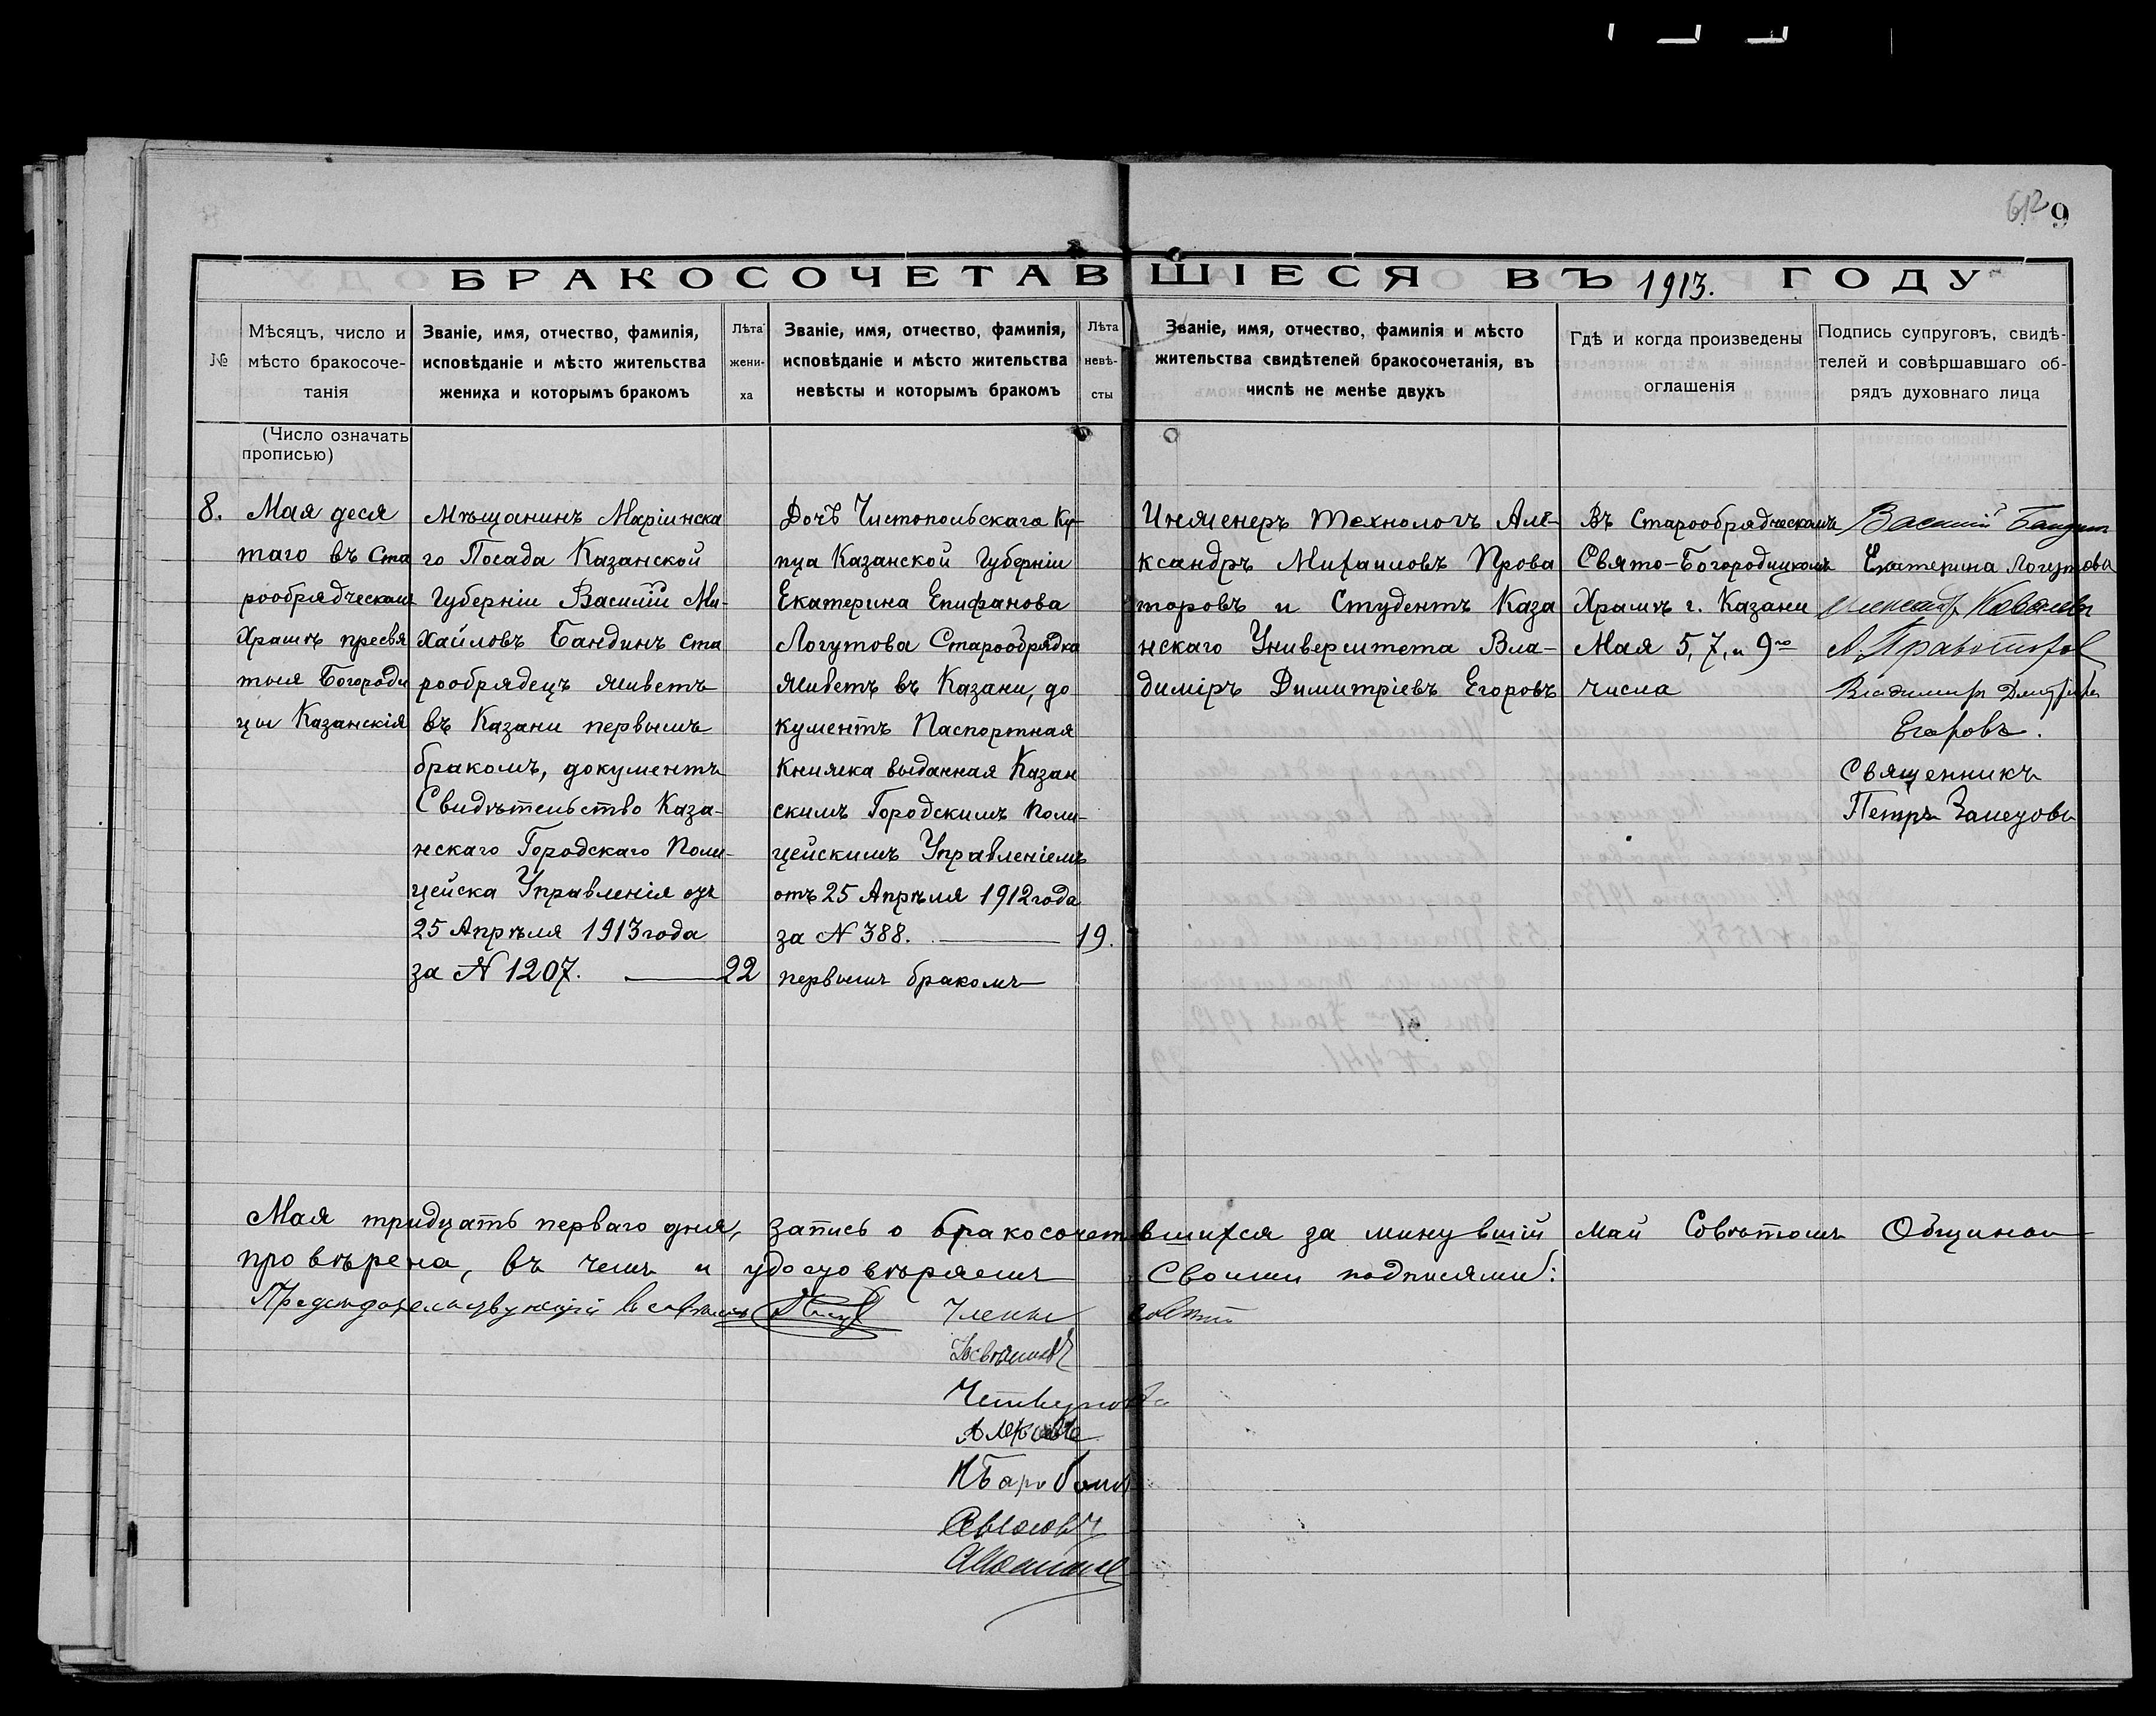 612 9
БРАКОСОЧЕТАВШІЕСЯ ВЪ 1913. ГОДУ
№
Мѣсяцъ, число и
мѣсто бракосоче-
танія
Званіе, имя, отчество, фамилія,
исповѣданіе и мѣсто жительства
жениха и которымъ бракомъ
Лѣта
жени-
ха
Званіе, имя, отчество, фамилія,
исповѣданіе и мѣсто жительства
невѣсты и которымъ бракомъ
Лѣта
невѣ-
сты
Званіе, имя, отчество, фамилія и мѣсто
жительства свидѣтелей бракосочетанія, въ
числѣ не менѣе двухъ
Гдѣ и когда произведены
оглашенія
Подпись супруговъ, свидѣ-
телей и совѣршавшаго об-
рядъ духовнаго лица
(Число означать
прописью)
8.
Мая деся
таго въ Ста
рообрядческомъ
Храмѣ пресвя
тыя Богороди
цы Казанскія
Мѣщанинъ Маріинска
го Посада Казанской
Губерніи Василій Ми-
хайловъ Бандинъ ста
рообрядецъ живетъ
въ Казани первымъ
бракомъ, документъ
Свидѣтельство Каза-
нскаго Городскаго Поли-
цейска Управленія отъ
25 Апрѣля 1913 года
за № 1207.
22
Дочь Чистопольскаго Ку-
пца Казанской Губерніи
Екатерина Епифанова
Логутова Старообрядка
живетъ въ Казани, до
кументъ Паспортная
Книжка выданная Казан
скимъ Городскимъ Поли-
цейскимъ Управленіемъ
отъ 25 Апрѣля 1912 года
за № 388.
первымъ бракомъ
19.
Инженеръ Технологъ Але-
ксандръ Михаиловъ Прова
торовъ и Студентъ Каза
нскаго Университета Вла-
димiръ Димитріевъ Егоровъ
Въ Старообрядческомъ
Свято-Богородицкомъ
Храмѣ г. Казани
Мая 5, 7, и 9го
числа
Василій Бандин
Екатерина Логутова
Владимиръ
Егоровъ.
Священникъ
Петръ
Мая тридцать перваго дня, запись о бракосочетавшихся за минувшій май Совѣтомъ Общины
провѣрена, въ чемъ и удостовѣряемъ Своими подписями:
Предсѣдательствующій въ совѣтѣ Члены совѣта